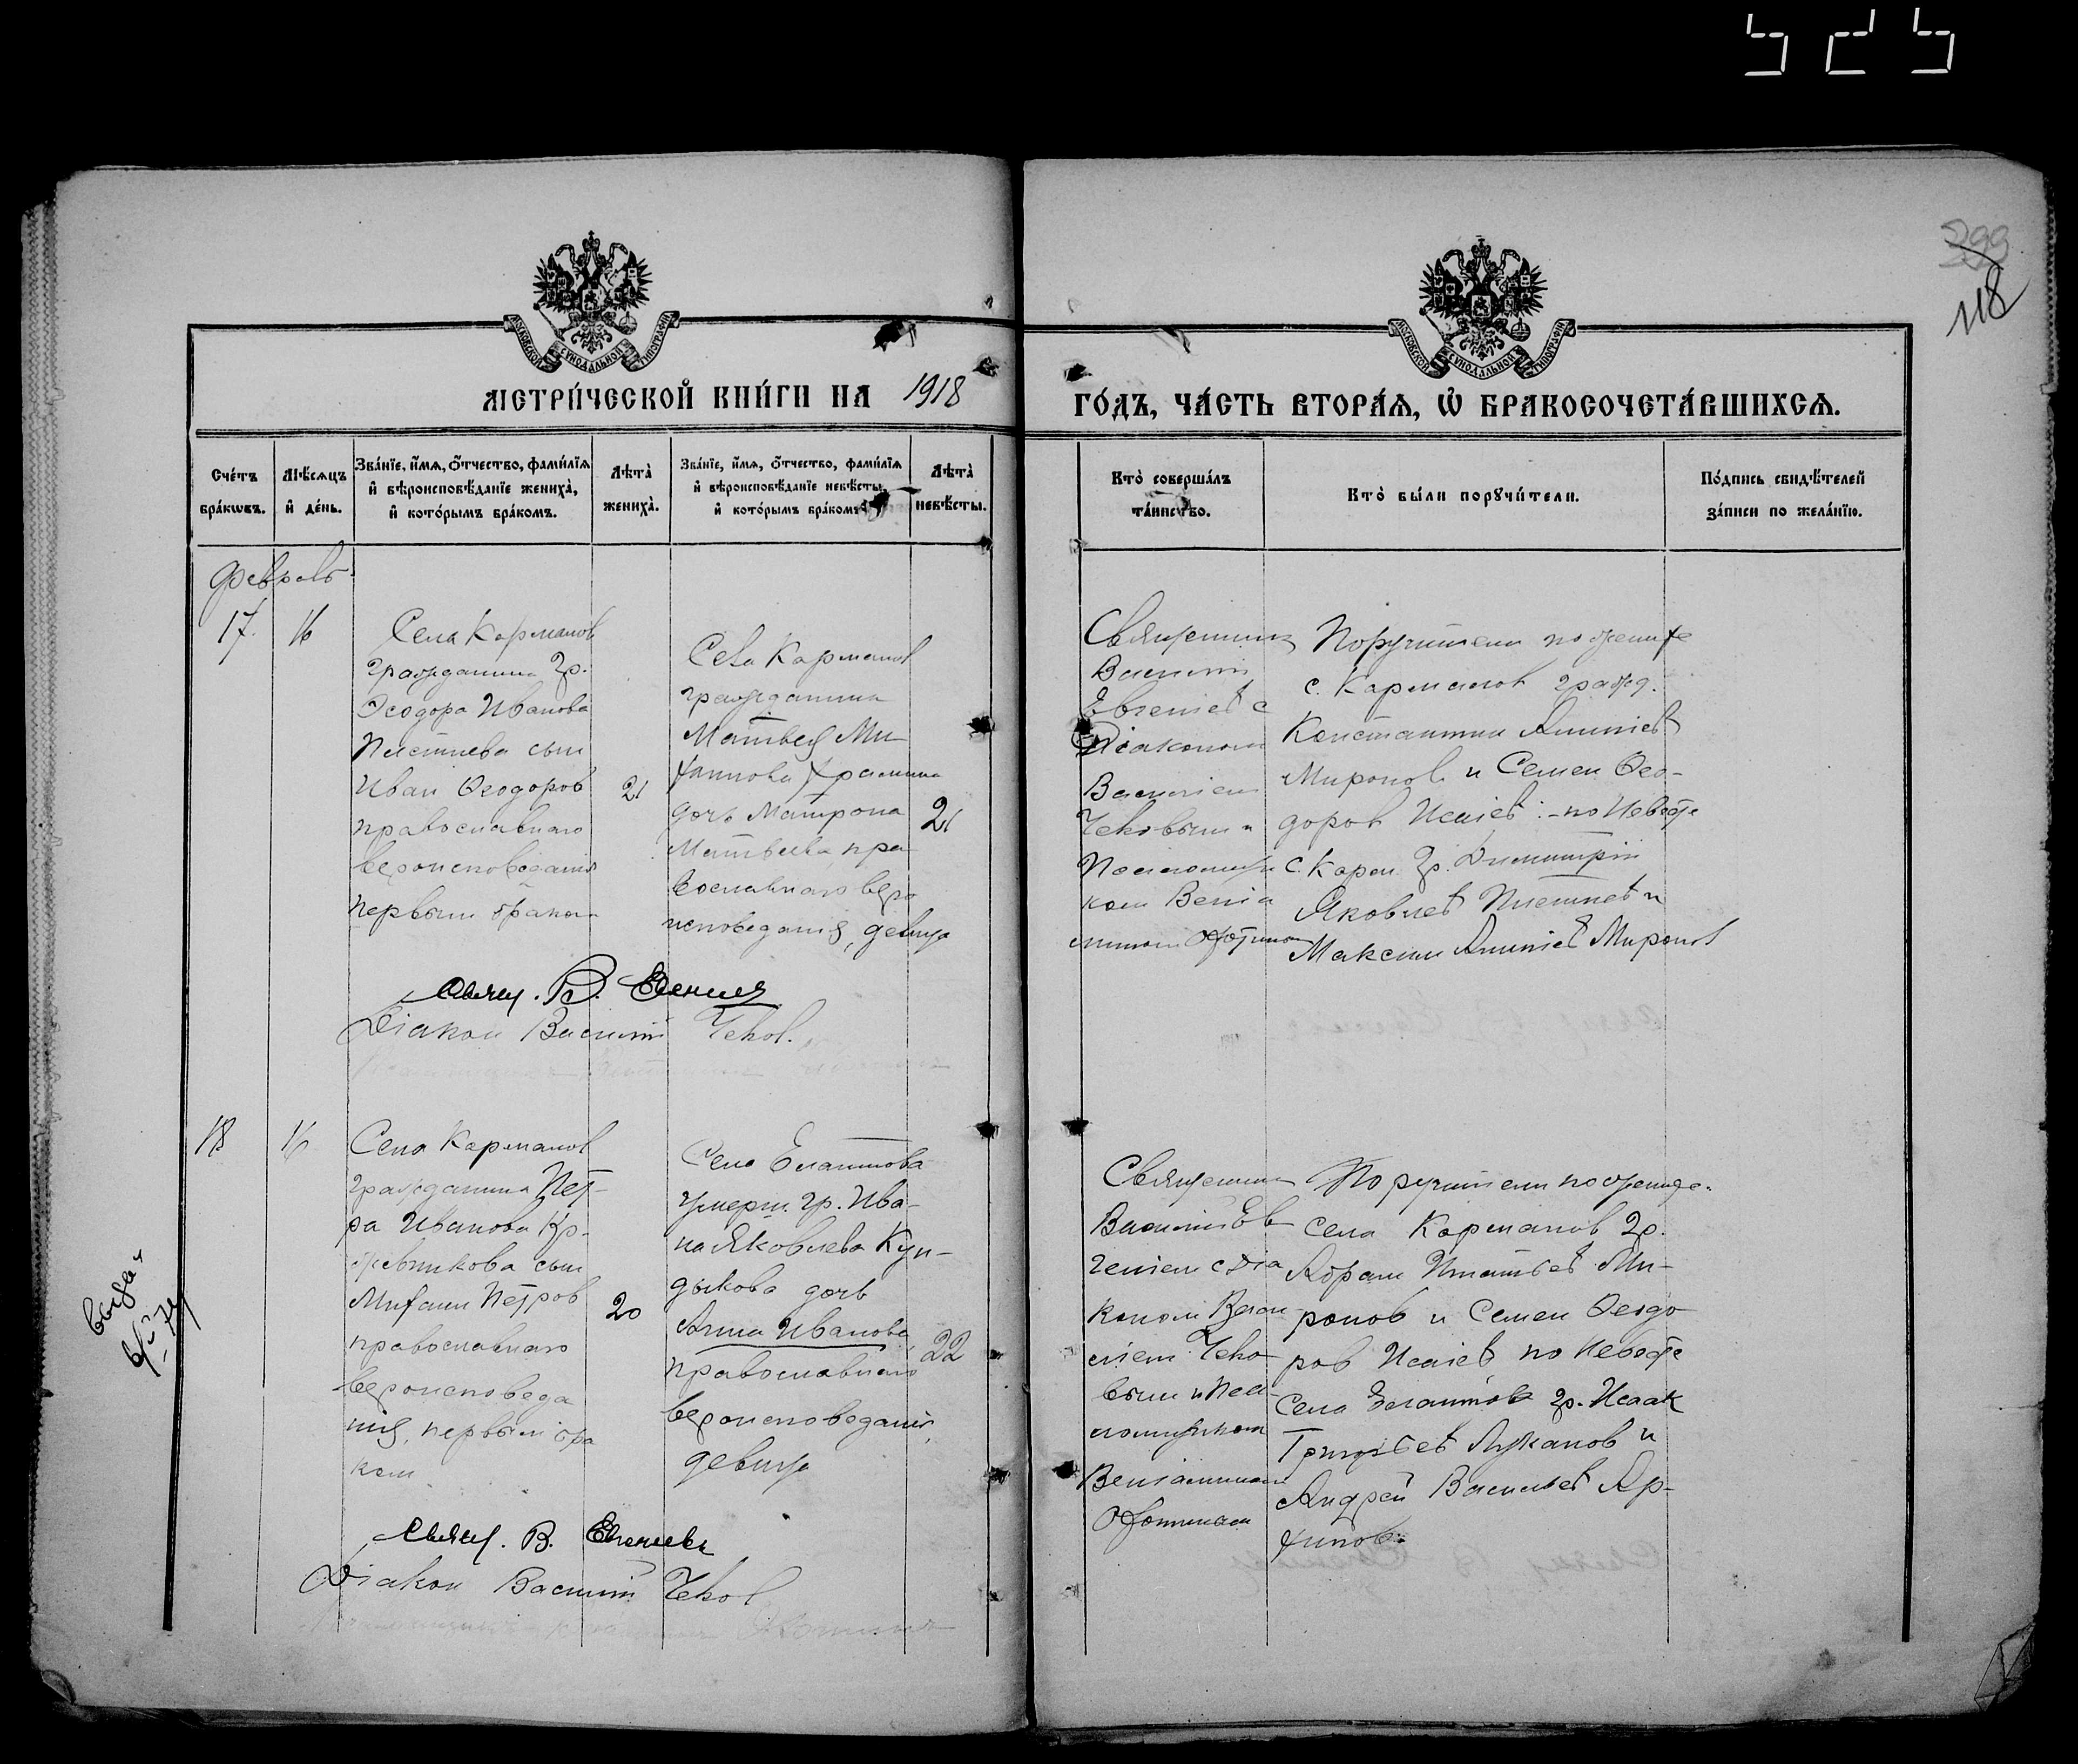 525
299
118
МОСКОВСКОЙ СѴНОДАЛЬНОЙ ТИПОГРАФІИ
МОСКОВСКОЙ СѴНОДАЛЬНОЙ ТИПОГРАФІИ
МЕТРИ́ЧЕСКОЙ КНИ́ГИ НА 1918
ГО́ДЪ, ЧА́СТЬ ВТОРА́Ѧ, Ѡ҆ БРАКОСОЧЕТА́ВШИХСѦ.
Сче́тъ бра́кѡвъ.
Мѣ́сѧцъ и҆ де́нь.
Зва́нїе, и҆́мѧ, ѻ҆́тчество, фами́лїѧ и҆ вѣроисповѣ́данїе жениха̀, и҆ кото́рымъ бра́комъ.
Лѣта̀ жениха̀.
Зва́нїе, и҆́мѧ, ѻ҆́тчество, фами́лїѧ и҆ вѣроисповѣ́данїе невѣ́сты, и҆ кото́рымъ бра́комъ.
Лѣта̀ невѣ́сты.
Кто̀ соверша́лъ та́инство.
Кто̀ бы́ли порꙋчи́тели.
По́дпись свидѣ́телей за́писи по жела́нїю.
Февраль
17. 16
Села Карманов
гражданина гр.
Ѳеодора Иванова
сын
Иван Ѳеодоров
православнаго
вероисповедания
первым браком
21
Села Карманов
гражданина
Матвея Ми
дочь Матрона
Матвеева пра
вославнаго веро
исповедания, девица
21
Священник
Василий
Евгениев с
Диаконом
Василием
Чековым и
Псаломщи
ком Вениа
мином
Поручители по женихе
с. Карманов гражд.
Константин
Миронов и Семен Ѳео-
доров Исаиев :- по Невесте
с. Карм. гр. Димитрий
Яковлев и
Максим Миронов
Свящ. В. Евгениев
Диакон Василий Чеков.
18 16
Села Карманов
гражданина Пет-
ра Иванова
сын
Михаил Петров
православнаго
вероисповеда
ния, первым бра
ком
20
Села Елаптова
умерш. гр. Ива-
на Яковлева Кун-
дыкова дочь
Анна Иванова
православнаго
вероисповедания,
девица
22
Священник
Василий Ев
гением с диа
коном Васи
лием Чеко
вым и Пса
ломщиком
Вениамином
Поручители по жениху
села Карманов гр.
Абрам Игнатьев Ми-
ронов и Семен Ѳеодо
ров Исаиев по Невесте
Села гр. Исаак
Григорьев Луканов и
Андрей Васильев Ар-
хипов.
Свящ. В. Евгениев
Диакон Василий Чеков